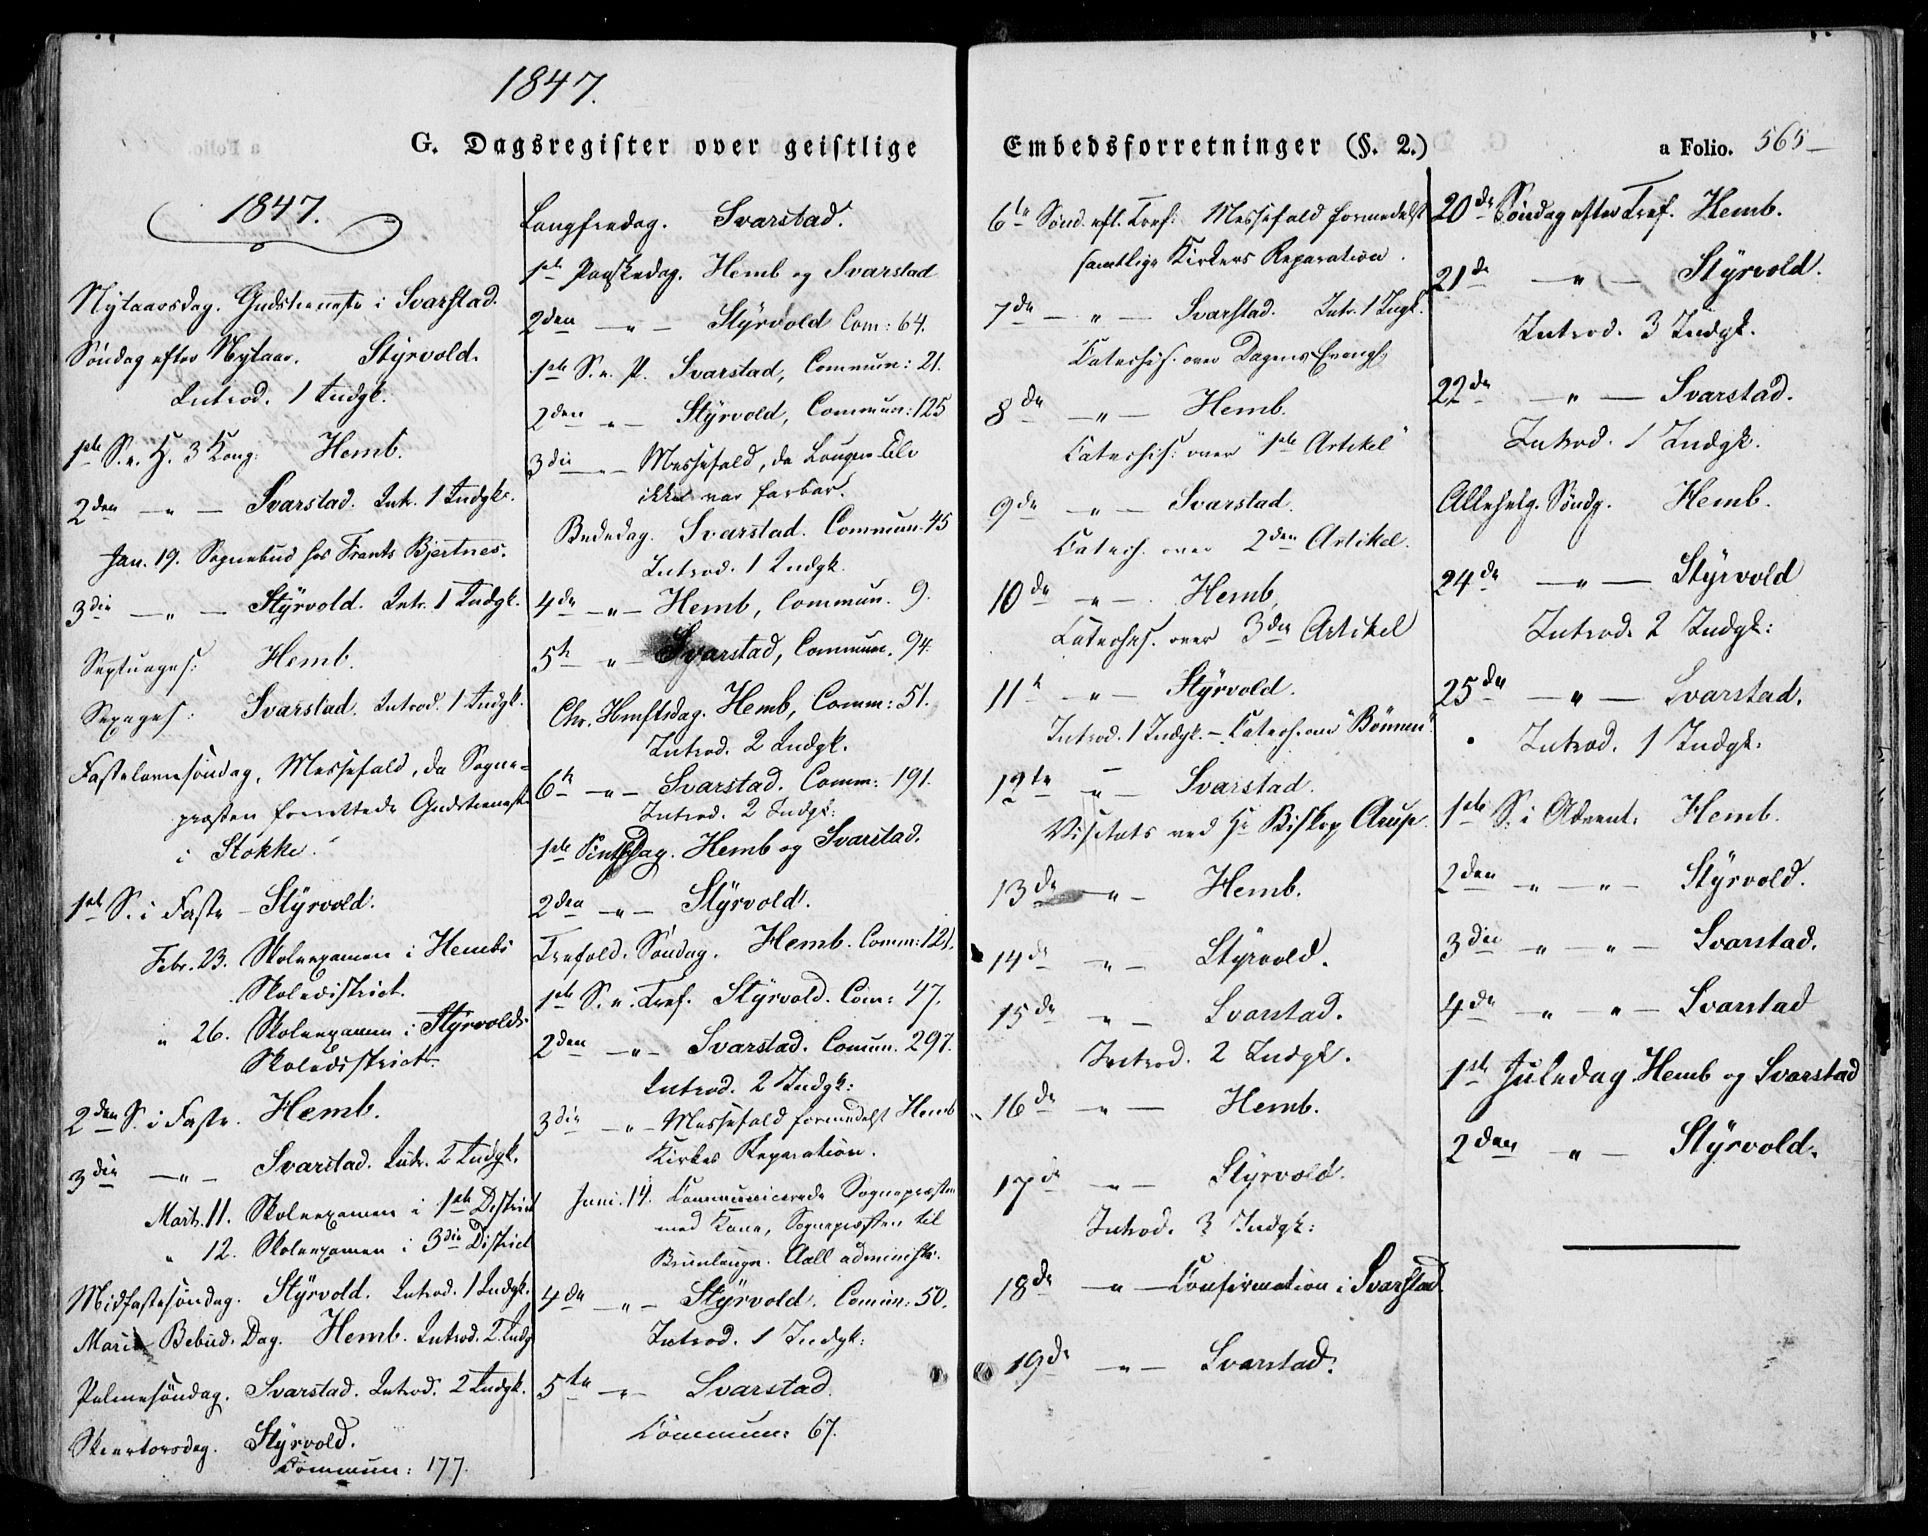 1847.
G. Dagsregister over geistlige
1847.
Nytaarsdag. Gudstieneste i Svarstad.
Søndag efter Nytaar. Styrvold.
Introd. 1 Indgk.
1ste S. e. H. 3 Kong: Hemb.
2den — " — Svarstad. Intr. 1 Indgk.
Jan. 19. Sognebud hos Frants Bjertnes.
3die — " — Styrvold. Intr. 1 Indgk.
Septuages: Hemb.
Sexages: Svarstad. Introd. 1 Indgk.
Fastelavnsøndag, Messefald, da Sogne-
præsten forrettede Gudstieneste
i Stokke.
1ste S. i Faste — Styrvold.
Febr. 23. Skoleexamen i Hembs
Skoledistrict.
" 26. Skoleexamen i Styrvolds
Skoledistrict.
2den S. i Faste. Hemb.
3die — " — Svarstad. Intr. 2 Indgk.
Marts. 11. Skoleexamen i 1ste District
" 12. Skoleexamen i 3die District
Midfastesøndag. Styrvold. Introd. 1 Indgk.
Mariæ Bebud. Dag. Hemb. Introd. 2 Indg
Palmesøndag. Svarstad. Introd. 2 Indgk.
Skiertorsdag. Styrvold.
Commun: 177.
Langfredag. Svarstad.
1ste Paaskedag. Hemb og Svarstad
2den — " — Styrvold Com: 64.
1ste S. e. P. Svarstad, Commun: 21.
2den — " — Styrvold, Commun: 125
3die — " — Messefald, da Lougen Elv
ikke var farbar.
Bededag. Svarstad. Commun. 45
Introd. 1 Indgk.
4de — " — Hemb, Commun. 9.
5te — " — Svarstad, Commun. 94.
Chr. Himfltsdag. Hemb, Comm: 51.
Introd. 2 Indgk.
6te — " — Svarstad. Comm: 191.
Introd. 2 Indgk:
1ste Pintsedag. Hemb og Svarstad.
2den — " — Styrvold.
Trefold. Søndag. Hemb. Comm: 121.
1ste S. e. Tref. Styrvold. Com: 47.
2den — " — Svarstad. Comun. 297.
Introd. 2 Indgk:
3die — " — Messefald formedelst Hemb
Kirkes Reparation.
Juni. 14. Communicerede Sognepræsten
med Kone, Sognepræsten til
Brunlaugn. Aall administr.
4de — " — Styrvold. Comun: 50.
Introd. 1 Indgk:
5te — " — Svarstad.
Commun: 67.
Embedsforretninger (§. 2.) a Folio. 565
6te Sønd. eft. Tref: Messefald formedelst
samtlige Kirkers Reparation.
7de — " — Svarstad. Intr. 1 Ingk.
Catechis. over Dagens Evangl
8de — " — Hemb.
Catechis: over "1ste Artikel"
9de — " — Svarstad.
Catech. over 2den Artikel.
10de — " — Hemb.
Catechis. over 3die Artikel
11te — " — Styrvold.
Introd. 1 Indgk. — Catech. om "Bønnen".
12te — " — Svarstad.
Visitats ved Hr Biskop Arup.
13de — " — Hemb.
14de — " — Styrvold.
15de — " — Svarstad.
Introd. 2 Indgk.
16de — " — Hemb.
17de — " — Styrvold.
Introd. 3 Indgk:
18de — " — Confirmation i Svarstad.
19de — " — Svarstad.
20de Søndag efter Tref. Hemb.
21de — " — Styrvold.
Introd. 3 Indgk.
22de — " — Svarstad.
Introd. 1 Indgk.
Allehelg. Søndg. Hemb.
24de — " — Styrvold
Introd. 2 Indgk:
25de — " — Svarstad.
Introd. 1 Indgk.
1ste S. i Advent. Hemb.
2den — " — " — Styrvold.
3die — " — " — Svarstad.
4de — " — " — Svarstad
1ste Juledag Hemb og Svarstad
2den — " — Styrvold.